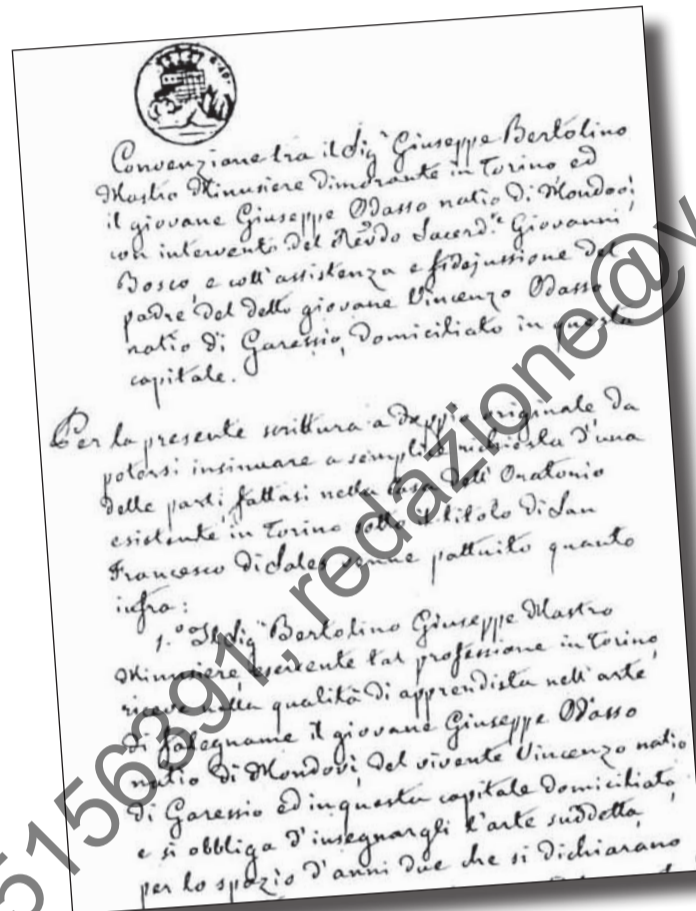 Convenzione tra il Sig.r Giuseppe Bertolino
Mastro Minusiere dimorante in Torino ed
il giovane Giuseppe Odasso natio di Mondovì,
con intervento del Rev.do Sacerd.te Giovanni
Bosco e coll'assistenza e fidejussione del
padre del detto giovane Vincenzo Odasso
natio di Garessio, domiciliato in questa
capitale.
Per la presente scrittura a doppio originale da
potersi insinuare a semplice richiesta d'una
delle parti fattasi nella Casa dell'Oratorio
esistente in Torino sotto il titolo di San
Francesco di Sales venne pattuito quanto
infra:
1.° Il Sig.r Bertolino Giuseppe Mastro
Minusiere esercente tal professione in Torino
riceve nella qualità di apprendista nell'arte
di falegname il giovane Giuseppe Odasso
natio di Mondovì, del vivente Vincenzo natio
di Garessio ed in questa capitale domiciliato,
e si obbliga d'insegnargli l'arte suddetta,
per lo spazio d'anni due che si dichiarano
5156391, redazione@v